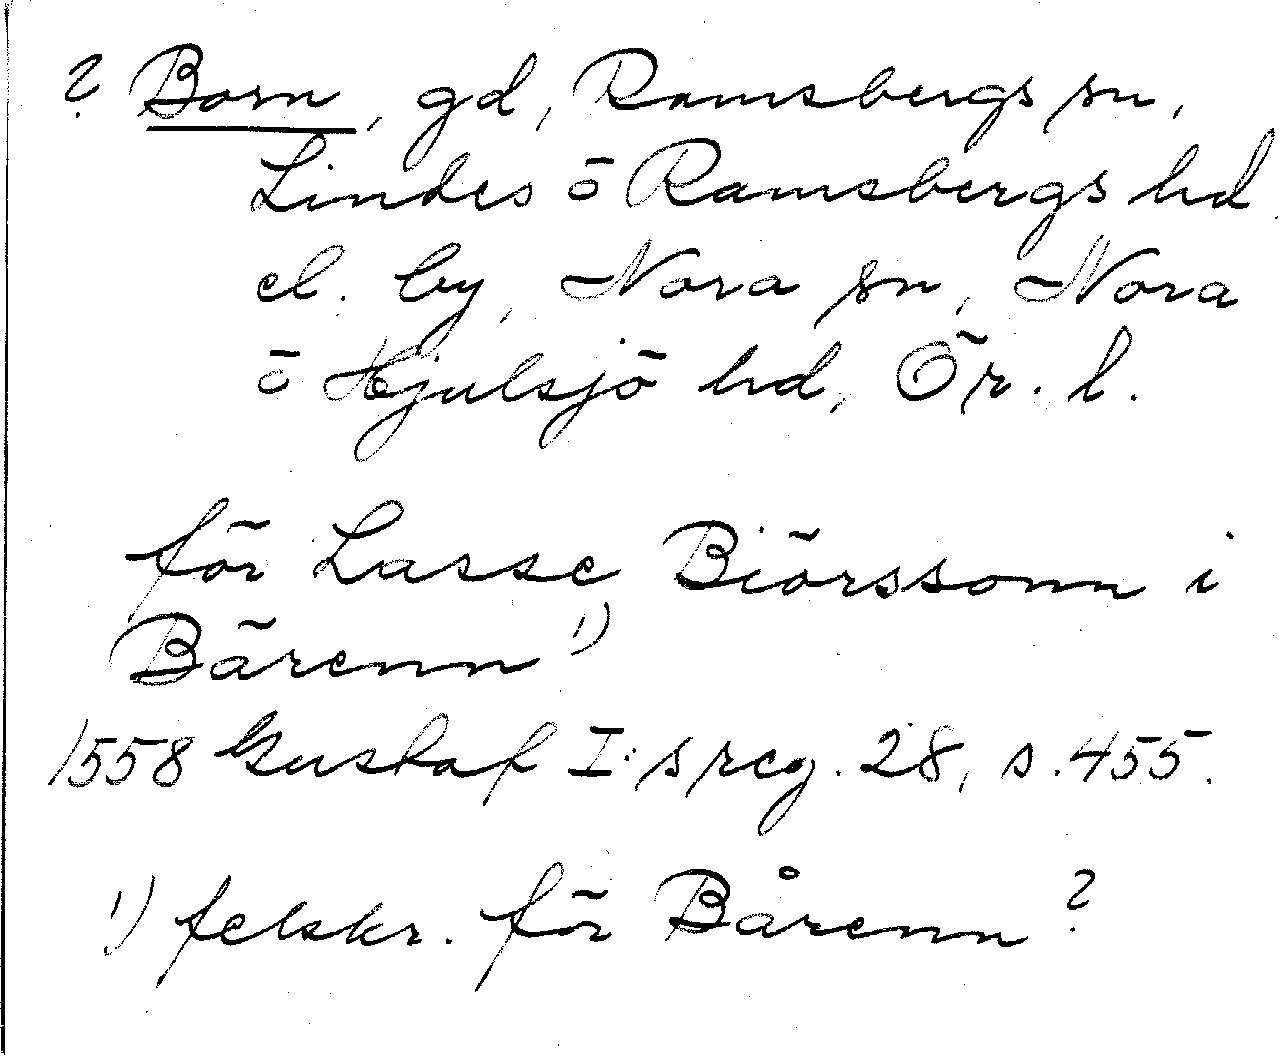 ? Born, gd, Ramsbergs sn,
Lindes ö Ramsbergs hd
el. by, Nora sn, Nora
ö Hjulsjö hd, Ör. l.
för Lasse Biörssonn i
Bärenn 1)
1558 Gustaf I:s reg. 28, s. 455.
1) felskr. för Bårenn?